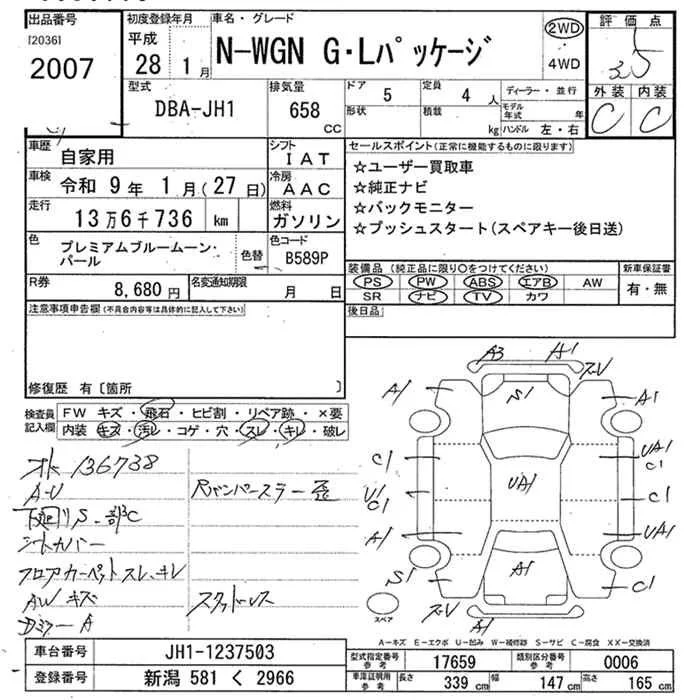 出品番号
[2036]
2007
初度登録年月
平成
28 1月
車名・グレード
N-WGN G・Lパッケージ
2WD
4WD
評価点
3.5
外装 内装
C C
型式
DBA-JH1
排気量
658
CC
ドア
5
定員
4 人
形状
積載
kg
ディーラー・並行
モデル年式 年
ハンドル 左・右
車歴
自家用
シフト
IAT
車検
令和 9年 1月(27日)
冷房
AAC
走行
13万6千736 km
燃料
ガソリン
色
プレミアムブルームーン・パール
色替
色コード
B589P
R券
8,680円
名変通知期限
月 日
セールスポイント(正常に機能するものに限ります)
☆ユーザー買取車
☆純正ナビ
☆バックモニター
☆プッシュスタート(スペアキー後日送)
装備品(純正品に限り○をつけてください)
PS PW ABS エアB AW
SR ナビ TV カワ
新車保証書
有・無
後日品
注意事項申告欄(不具合内容等は具体的に記入して下さい)
修復歴 有〔箇所 〕
検査員記入欄
FW キズ・飛石・ヒビ割・リペア跡・×要
内装 キズ・汚レ・コゲ・穴・スレ・キレ・破レ
136738
A-U
下廻りS・部C
シートカバー
フロアカーペットスレ・キレ
AWキズ
DミラーA
Rバンパースラー歪
スタットレス
A3 A1
ズレV
A1
S1
A1
C1
UA1
C1
UA1
U1
C1
C1
A1
UA1
S1
A1
C1
ズレV
A1
スペア
A－キズ E－エクボ U－凹み W－補修跡 S－サビ C－腐食 XX－交換済
車台番号
JH1-1237503
登録番号
新潟 581 く 2966
型式指定番号
参考
17659
類別区分番号
参考
0006
車庫証明用
参考
長さ 339 cm 幅 147 cm 高さ 165 cm